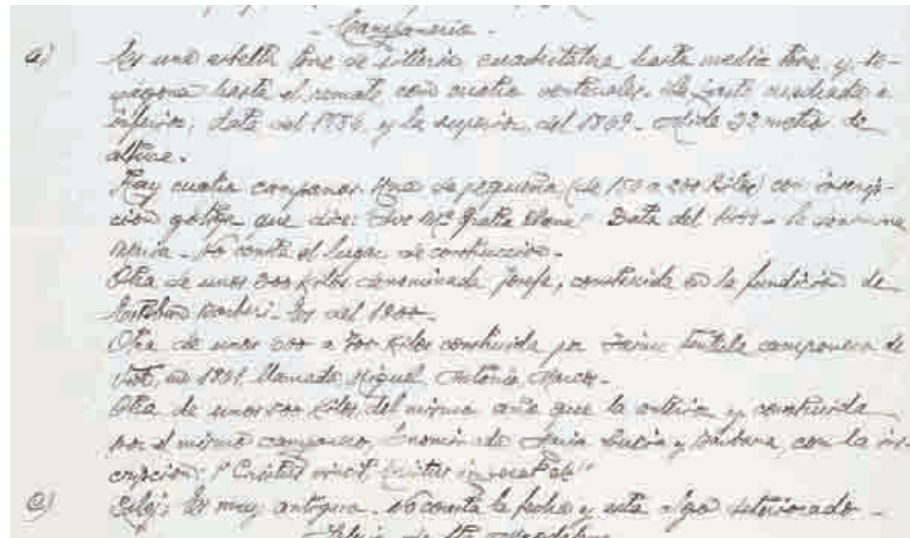 Campanario.
a) Es una esbelta torre de sillería cuadrilatera hasta media torre y
hasta el remate con cuatro ventanales. La parte cuadrada e
inferior, data del 1786 y la superior del 1809. Mide 32 metros de
altura.
Hay cuatro campanas. Una de pequeña (de 150 a 200 kilos) con inscrip-
ción gótica que dice: "Ave Mª Gratia Plena" Data del Se denomina
María. No consta el lugar de construcción.
Otra de unos 300 kilos denominada Josefa, construida en la fundición de
Esteban Es del 1900.
Otra de unos a 700 kilos construida por Jaime campanero de
en 1801 llamada Miguel, Antonia, Marcos.
Otra de unos 500 kilos del mismo año que la anterior y construida
por el mismo campanero denominada Lucía y Bárbara, con la ins-
cripción: "Cristus vincit Cristus
e) Reloj: Es muy antiguo. No consta la fecha y está algo deteriorado.